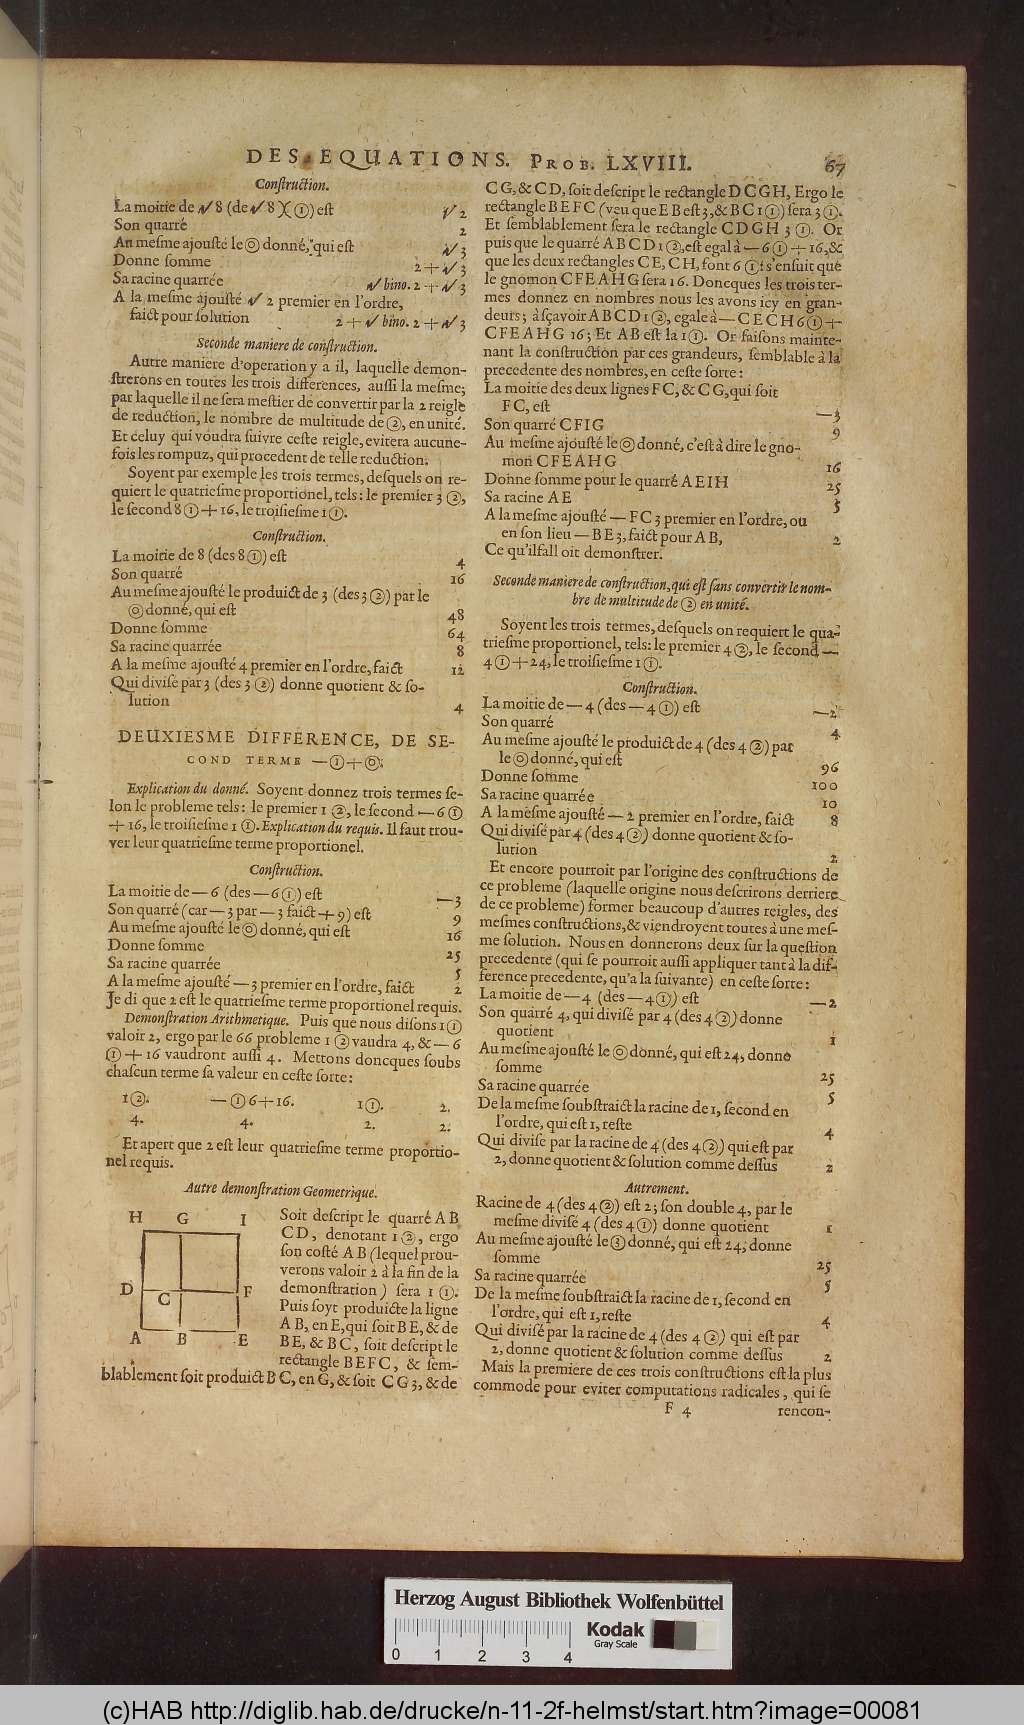 DES EQUATIONS. PROB. LXVIII. 67
Conſtruction.
La moitie de √ 8 (de √ 8 )( ①) eſt √ 2
Son quarré 2
Au meſme ajouſté le ⓪ donné, qui eſt √ 3
Donne ſomme 2 + √ 3
Sa racine quarrée √ bino. 2 + √ 3
A la meſme ajouſté √ 2 premier en l'ordre,
faict pour ſolution 2 + √ bino. 2 + √ 3
Seconde maniere de conſtruction.
Autre maniere d'operation y a il, laquelle demon-
ſtrerons en toutes les trois differences, auſſi la meſme;
par laquelle il ne ſera meſtier de convertir par la 2 reigle
de reduction, le nombre de multitude de ②, en unité.
Et celuy qui voudra ſuivre ceſte reigle, evitera aucune-
fois les rompuz, qui procedent de telle reduction.
Soyent par exemple les trois termes, deſquels on re-
quiert le quatrieſme proportionel, tels: le premier 3 ②,
le ſecond 8 ① + 16, le troiſieſme 1 ①.
Conſtruction.
La moitie de 8 (des 8 ①) eſt 4
Son quarré 16
Au meſme ajouſté le produict de 3 (des 3 ②) par le
⓪ donné, qui eſt 48
Donne ſomme 64
Sa racine quarrée 8
A la meſme ajouſté 4 premier en l'ordre, faict 12
Qui diviſe par 3 (des 3 ②) donne quotient & ſo-
lution 4
DEUXIESME DIFFERENCE, DE SE-
COND TERME — ① + ⓪.
Explication du donné. Soyent donnez trois termes ſe-
lon le probleme tels: le premier 1 ②, le ſecond — 6 ①
+ 16, le troiſieſme 1 ①. Explication du requis. Il faut trou-
ver leur quatrieſme terme proportionel.
Conſtruction.
La moitie de — 6 (des — 6 ①) eſt — 3
Son quarré (car — 3 par — 3 faict + 9) eſt 9
Au meſme ajouſté le ⓪ donné, qui eſt 16
Donne ſomme 25
Sa racine quarrée 5
A la meſme ajouſté — 3 premier en l'ordre, faict 2
Je di que 2 eſt le quatrieſme terme proportionel requis.
Demonſtration Arithmetique. Puis que nous diſons 1 ①
valoir 2, ergo par le 66 probleme 1 ② vaudra 4, & — 6
① + 16 vaudront auſſi 4. Mettons doncques ſoubs
chaſcun terme ſa valeur en ceſte ſorte:
1 ②. — ① 6 + 16. 1 ①. 2.
4. 4. 2. 2.
Et apert que 2 eſt leur quatrieſme terme proportio-
nel requis.
Autre demonſtration Geometrique.
H G I
D C F
A B E
Soit deſcript le quarré A B
C D, denotant 1 ②, ergo
ſon coſté A B (lequel prou-
verons valoir 2 à la fin de la
demonſtration) ſera 1 ①.
Puis ſoyt produicte la ligne
A B, en E, qui ſoit B E, & de
B E, & B C, ſoit deſcript le
rectangle B E F C, & ſem-
blablement ſoit produict B C, en G, & ſoit C G 3, & de
C G, & C D, ſoit deſcript le rectangle D C G H, Ergo le
rectangle B E F C (veu que E B eſt 3, & B C 1 ①) ſera 3 ①.
Et ſemblablement ſera le rectangle C D G H 3 ①. Or
puis que le quarré A B C D 1 ②, eſt egal à — 6 ① + 16, &
que les deux rectangles C E, C H, font 6 ①: s'enſuit que
le gnomon C F E A H G ſera 16. Doncques les trois ter-
mes donnez en nombres nous les avons icy en gran-
deurs; à ſçavoir A B C D 1 ②, egale à — C E C H 6 ① +
C F E A H G 16; Et A B eſt la 1 ①. Or faiſons mainte-
nant la conſtruction par ces grandeurs, ſemblable à la
precedente des nombres, en ceſte ſorte:
La moitie des deux lignes F C, & C G, qui ſoit
F C, eſt — 3
Son quarré C F I G 9
Au meſme ajouſté le ⓪ donné, c'eſt à dire le gno-
mon C F E A H G 16
Donne ſomme pour le quarré A E I H 25
Sa racine A E 5
A la meſme ajouſté — F C 3 premier en l'ordre, ou
en ſon lieu — B E 3, faict pour A B, 2
Ce qu'il fall oit demonſtrer.
Seconde maniere de conſtruction, qui eſt ſans convertir le nom-
bre de multitude de ② en unité.
Soyent les trois termes, deſquels on requiert le qua-
trieſme proportionel, tels: le premier 4 ②, le ſecond —
4 ① + 24, le troiſieſme 1 ①.
Conſtruction.
La moitie de — 4 (des — 4 ①) eſt — 2
Son quarré 4
Au meſme ajouſté le produict de 4 (des 4 ②) par
le ⓪ donné, qui eſt 96
Donne ſomme 100
Sa racine quarrée 10
A la meſme ajouſté — 2 premier en l'ordre, faict 8
Qui diviſé par 4 (des 4 ②) donne quotient & ſo-
lution 2
Et encore pourroit par l'origine des conſtructions de
ce probleme (laquelle origine nous deſcrirons derriere
de ce probleme) former beaucoup d'autres reigles, des
meſmes conſtructions, & viendroyent toutes à une meſ-
me ſolution. Nous en donnerons deux ſur la queſtion
precedente (qui ſe pourroit auſſi appliquer tant à la dif-
ference precedente, qu'a la ſuivante) en ceſte ſorte:
La moitie de — 4 (des — 4 ①) eſt — 2
Son quarré 4, qui diviſé par 4 (des 4 ②) donne
quotient 1
Au meſme ajouſté le ⓪ donné, qui eſt 24, donne
ſomme 25
Sa racine quarrée 5
De la meſme ſoubſtraict la racine de 1, ſecond en
l'ordre, qui eſt 1, reſte 4
Qui diviſe par la racine de 4 (des 4 ②) qui eſt par
2, donne quotient & ſolution comme deſſus 2
Autrement.
Racine de 4 (des 4 ②) eſt 2; ſon double 4, par le
meſme diviſé 4 (des 4 ①) donne quotient 1
Au meſme ajouſté le ⓪ donné, qui eſt 24, donne
ſomme 25
Sa racine quarrée 5
De la meſme ſoubſtraict la racine de 1, ſecond en
l'ordre, qui eſt 1, reſte 4
Qui diviſé par la racine de 4 (des 4 ②) qui eſt par
2, donne quotient & ſolution comme deſſus 2
Mais la premiere de ces trois conſtructions eſt la plus
commode pour eviter computations radicales, qui ſe
F 4 rencon-
Herzog August Bibliothek Wolfenbüttel
0 1 2 3 4
Kodak
Gray Scale
(c)HAB http://diglib.hab.de/drucke/n-11-2f-helmst/start.htm?image=00081